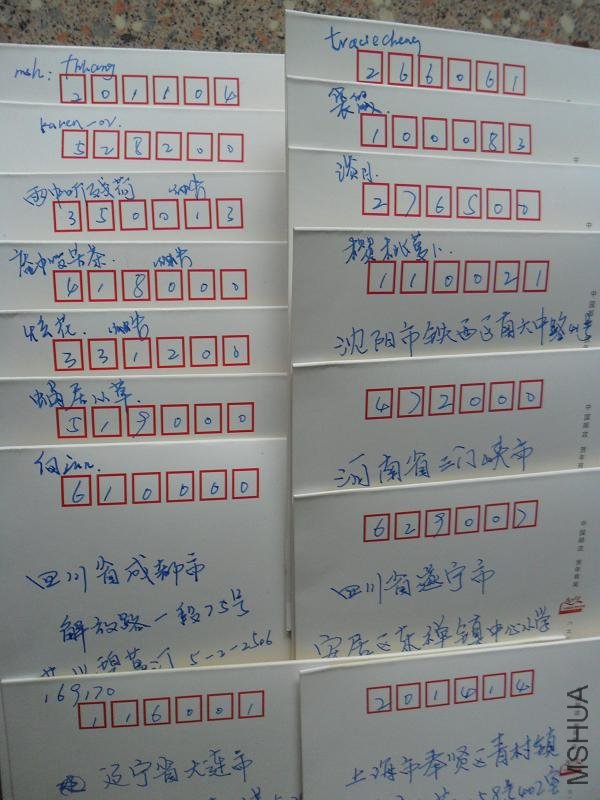 msh: thhang
201104
karen_ov.
528200
350013
418000
331200
蜗居小草.
519000
610000
四川省成都市
解放路一段75号
5-2-2506
169,170
116001
辽宁省大连市
traciecheng
266061
100083
淡月.
276500
胡萝卜.
110021
沈阳市铁西区南大中路
472000
河南省三门峡市
629007
四川省遂宁市
安居区东禅镇中心小学
201414
上海市奉贤区青村镇
58号402室
中国邮政 贺年有奖
中国邮政 贺年有奖
中国邮政 贺年有奖
MSHUA